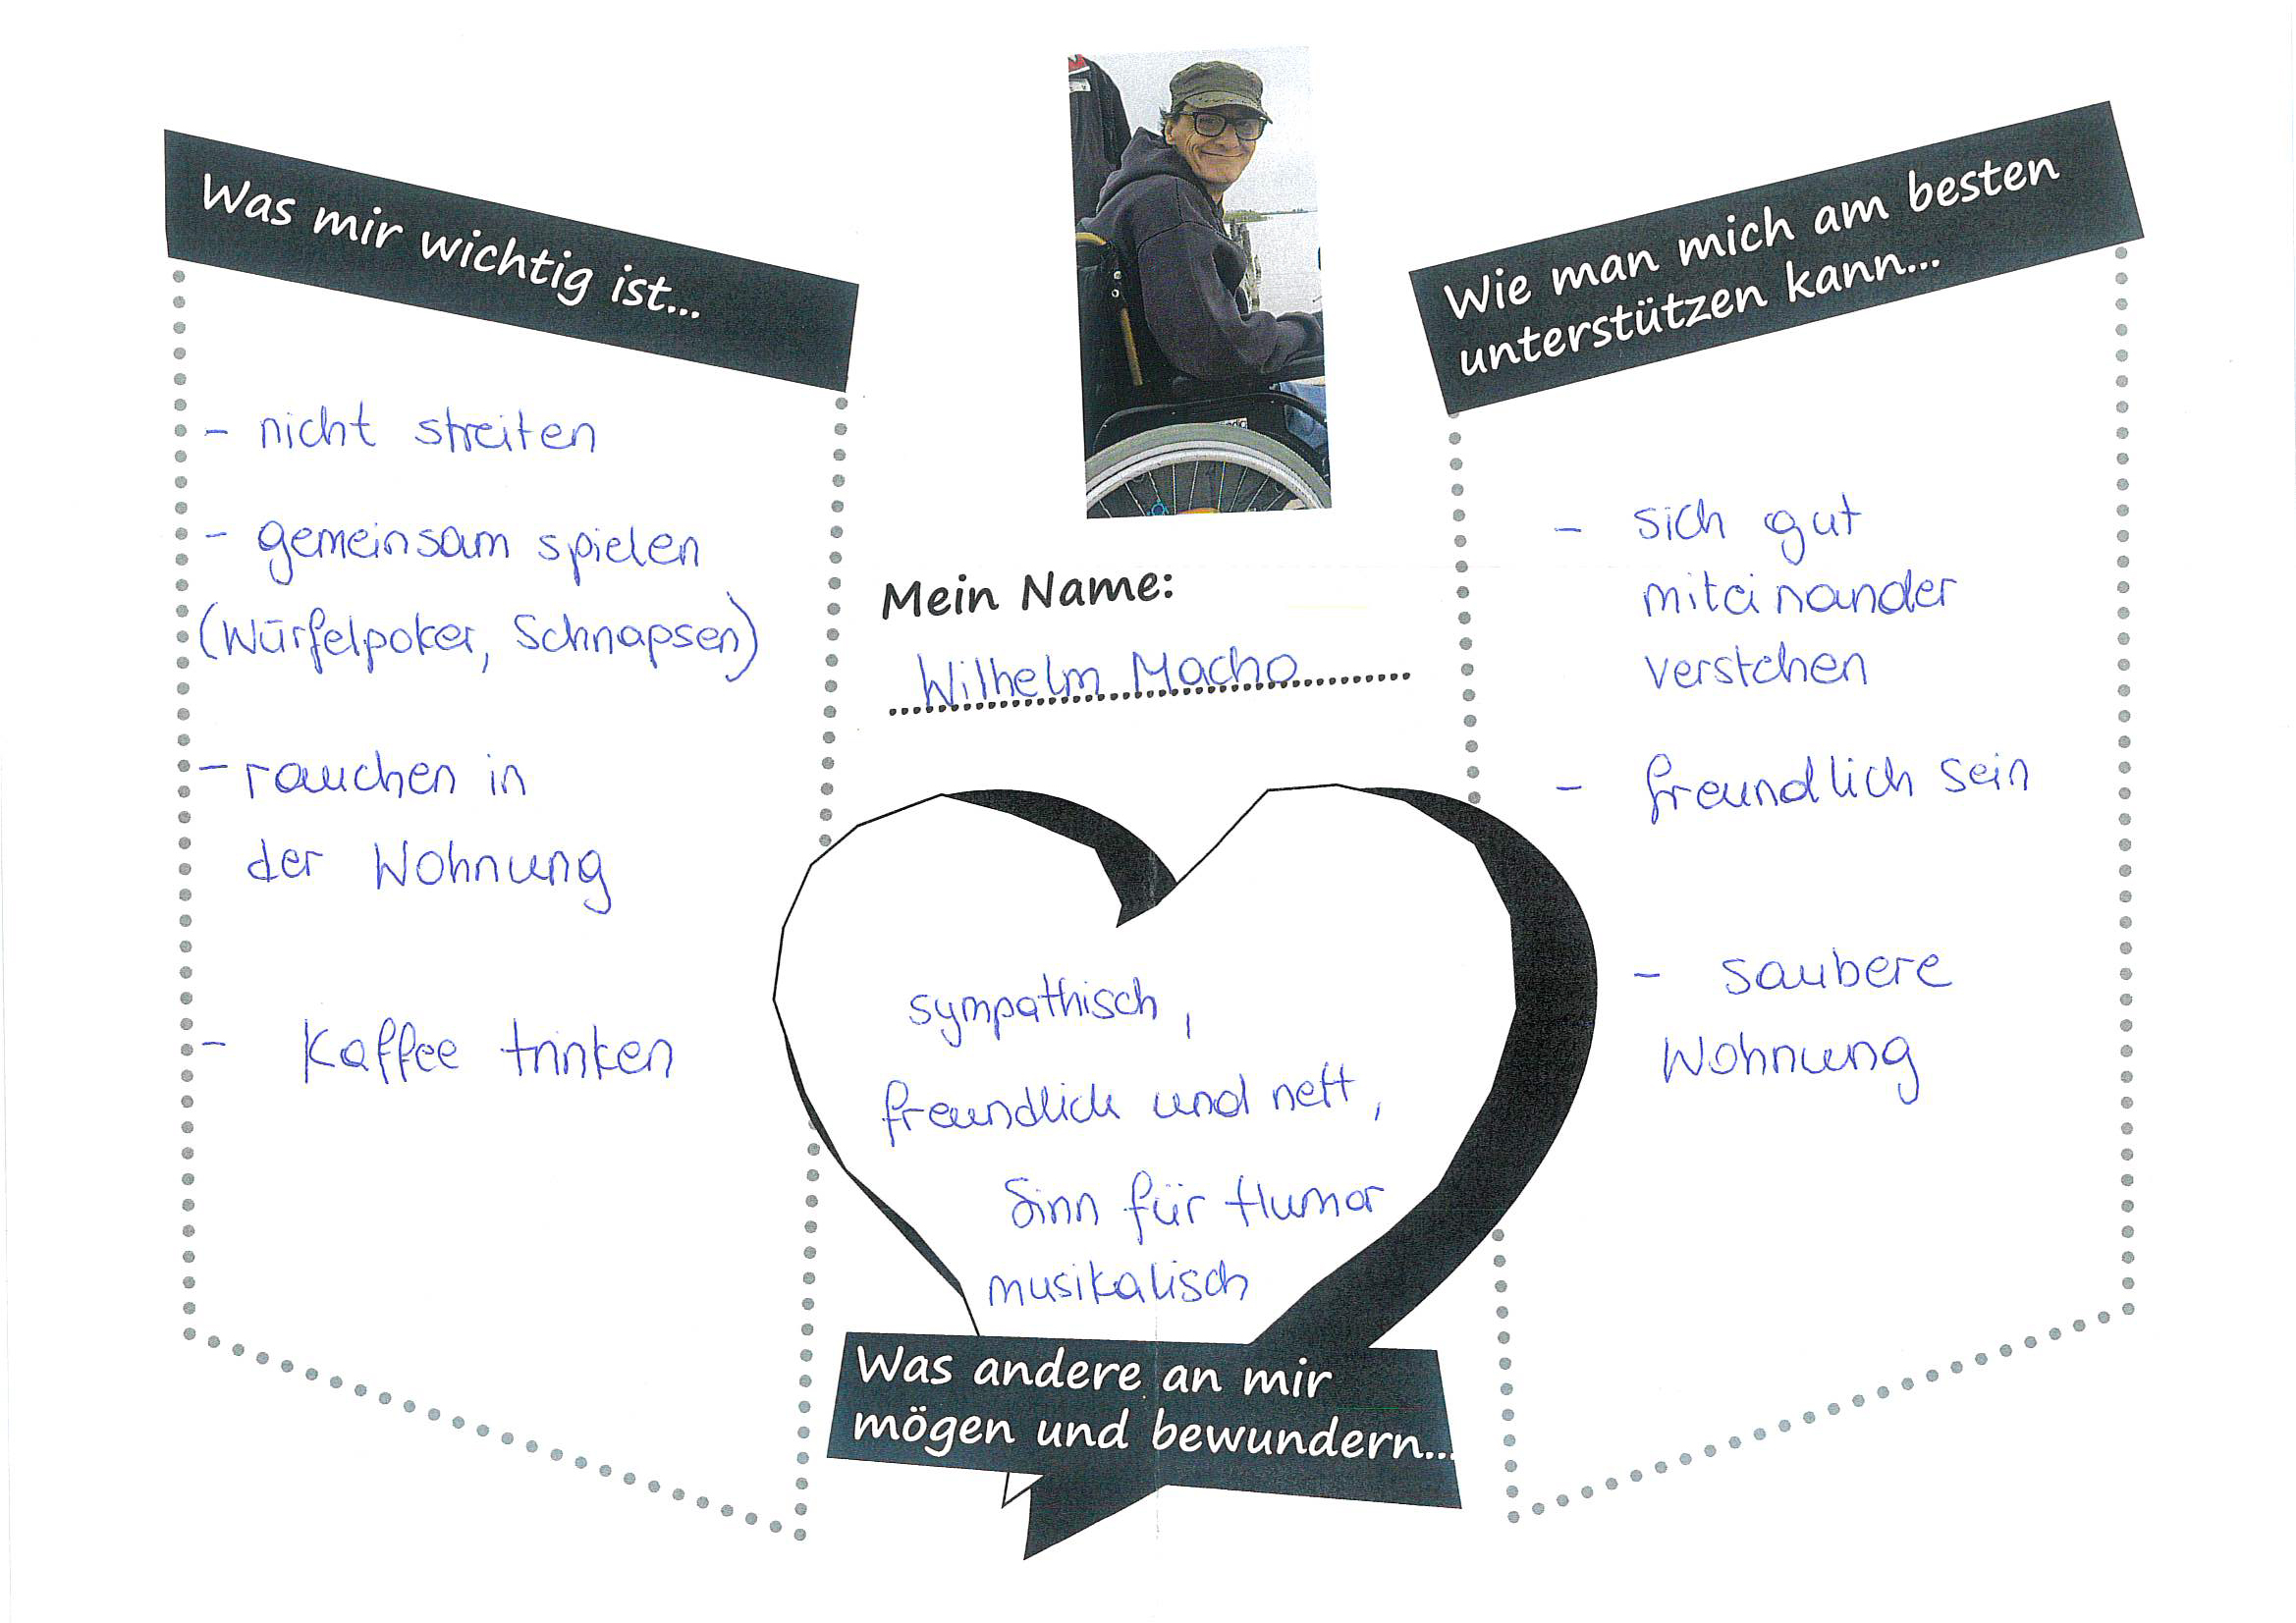 Was mir wichtig ist...
- nicht streiten
- gemeinsam spielen
(Würfelpoker, Schnapsen)
- rauchen in
der Wohnung
- Kaffee trinken
Mein Name:
Wilhelm Macho
sympathisch,
freundlich und nett,
Sinn für Humor
musikalisch
Was andere an mir
mögen und bewundern...
Wie man mich am besten
unterstützen kann...
- sich gut
miteinander
verstehen
- freundlich sein
- saubere
Wohnung